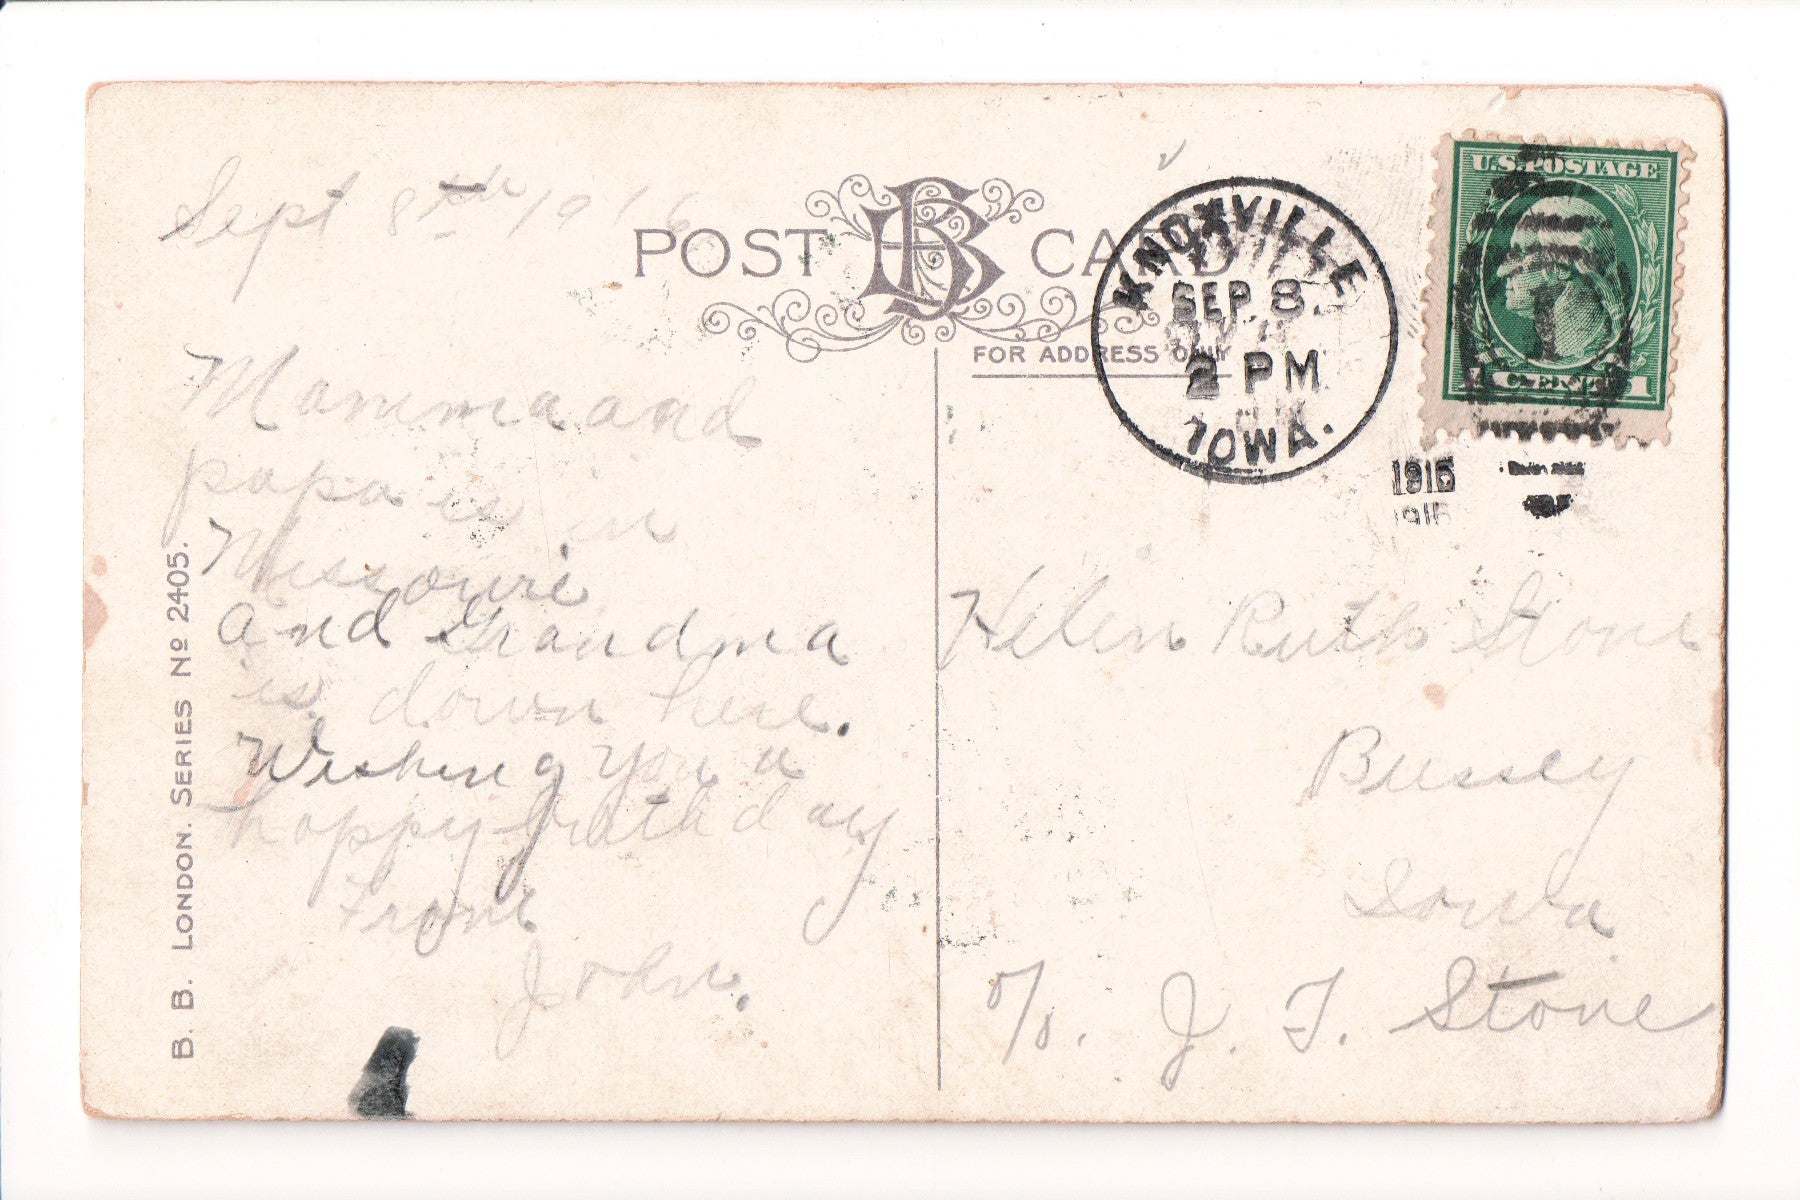 Sept 8th 1916
POST CARD
FOR ADDRESS ONLY
KNOXVILLE
SEP 8
2 PM
IOWA.
1916
1916
U.S. POSTAGE
1 CENT 1
Mamma and
papa is in
Missouri
and Grandma
is down here.
Wishing you a
happy birthday
From
John.
Helen Ruth Stone
Bussey
Iowa
c/o. J. F. Stone
B. B. LONDON. SERIES No 2405.